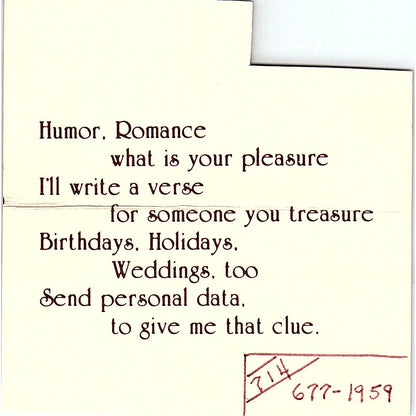 Humor, Romance
what is your pleasure
I'll write a verse
for someone you treasure
Birthdays, Holidays,
Weddings, too
Send personal data,
to give me that clue.
714
677-1959